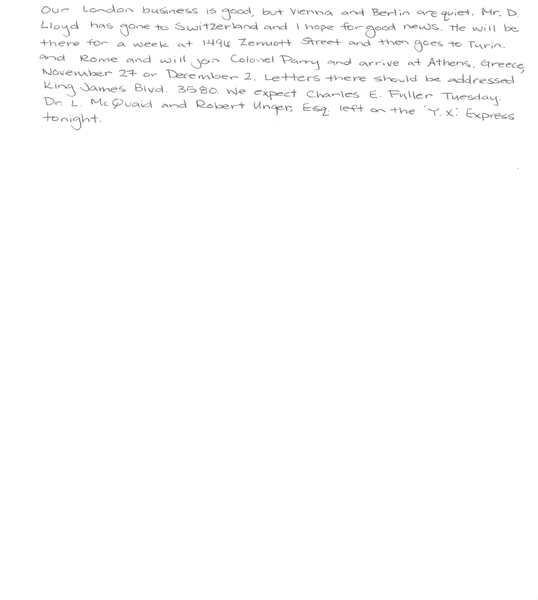 Our London business is good, but Vienna and Berlin are quiet. Mr. D.
Lloyd has gone to Switzerland and I hope for good news. He will be
there for a week at 1496 Zermott Street and then goes to Turin.
and Rome and will join Colonel Parry and arrive at Athens, Greece,
November 27 or December 2. Letters there should be addressed
King James Blvd. 3580. We expect Charles E. Fuller Tuesday.
Dr. L. McQuaid and Robert Unger, Esq. left on the 'Y.X.' Express
tonight.